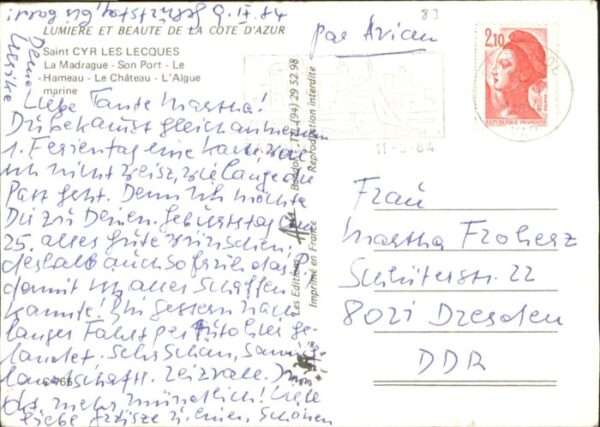 9. IX. 84
LUMIERE ET BEAUTE DE LA COTE D'AZUR
Saint CYR LES LECQUES
La Madrague - Son Port - Le
Hameau - Le Château - L'Algue
marine
Deine
Liebe Tante Martha!
Du bekamst gleich an meinem
1. Ferientag eine Karte, weil
ich nicht weiss, wie lange die
Post geht. Denn ich möchte
Dir zu Deinem Geburtstag am
25. alles Gute wünschen,
deshalb auch so früh das
damit
konnte! Bin gestern nach
langer Fahrt per Auto hier ge-
landet. Sehr schön, sonnig,
Landschaft reizvoll. Nun
das mehr mündlich! Viele
liebe Grüsse u. einen schönen
par Avion
83
2,10
REPUBLIQUE FRANÇAISE
11-9-84
Les Editions
Tél. (94) 29.52.98
Imprimé en France
Reproduction interdite
Frau
Martha Froherz
Schlüterstr. 22
8021 Dresden
DDR